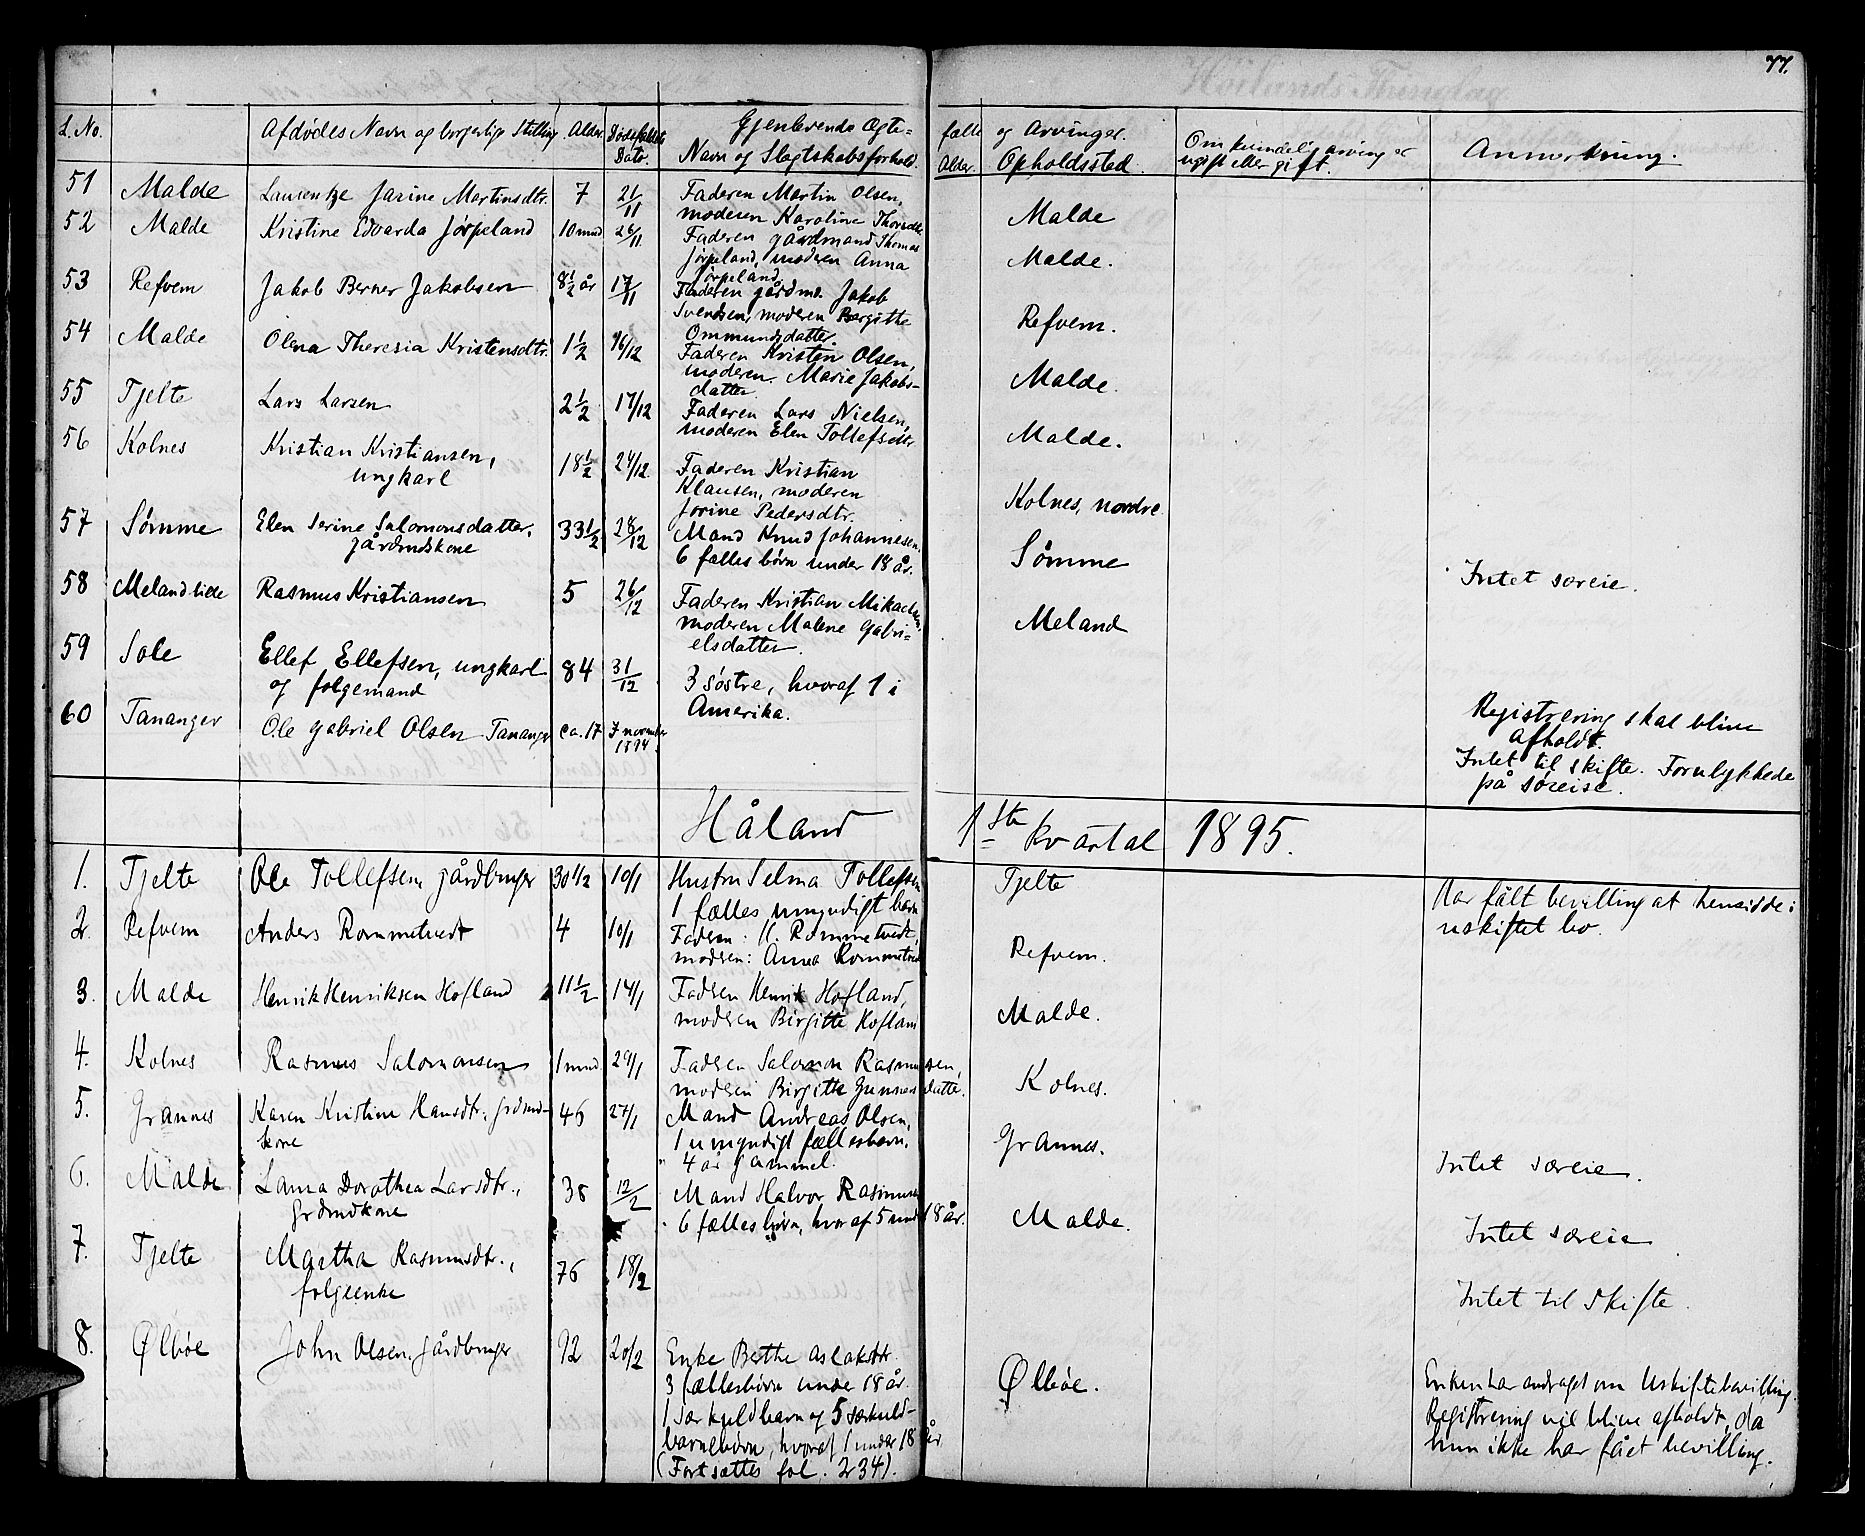 77.
L. No. Afdødes Navn og borgerlige Stilling. Alder. Dødsfaldets Dato. Gjenlevende Ægte= fælle og Arvinger.
Navn og Slegtskabsforhold. Alder. Opholdssted. Om kvindelig arving er ugift eller gift. Anmerkning.
51 Malde Laurentze Jasine Martinsdtr. 7 21/11 Faderen Martin Olsen,
moderen Karoline Thorsdtr. Malde
52 Malde Kristine Edvarda Jørpeland 10 mnd 26/11 Faderen gårdmand Thomas
Jørpeland, moderen Anna Malde.
Jørpeland.
53 Refvem Jakob Berner Jakobsen 8½ år 17/11 Faderen gårdmd. Jakob
Svendsen, moderen Bergitte Refvem.
Ommundsdatter.
54 Malde Olena Theresia Kristensdtr. 1½ 16/12 Faderen Kristen Olsen,
moderen Marie Jakobs- Malde.
datter.
55 Tjelte Lars Larsen 2½ 17/12 Faderen Lars Nielsen,
moderen Elen Tollefsdtr. Malde.
56 Kolnes Kristian Kristiansen,
ungkarl 18½ 24/12. Faderen Kristian
Klausen, moderen
Jorine Pedersdtr. Kolnes, nordre
57 Sømme Elen Serine Salomonsdatter,
gårdmdskone 33½ 28/12 Mand Knud Johannesen.
6 fælles børn under 18 år. Sømme Intet særeie.
58 Melandlide Rasmus Kristiansen 5 26/12 Faderen Kristian Mikaelsen,
moderen Malene Gabri= Meland
elsdatter.
59 Sole Ellef Ellefsen, ungkarl
og folgemand 84 31/12 3 søstre, hvoraf 1 i
Amerika. Registrering skal blive
afholdt.
60 Tananger Ole Gabriel Olsen Tananger ca. 17 7 november
1894 Intet til skifte. Forulykkede
på søreise.
Håland 1ste kvartal 1895.
1. Tjelte Ole Tollefsen, gårdbruger 30 1/2 10/1 Hustru Selma Tollefsen Tjelte
1 fælles umyndigt barn Har fått bevilling at hensidde i
uskiftet bo.
2. Refvem Anders Rommetvedt 4 10/1 Faderen: K. Rommetvedt,
moderen: Anna Rommetvedt Refvem.
3. Malde Henrik Henriksen Hofland 11½ 14/1 Faderen Henrik Hofland,
moderen Birgitte Hofland Malde.
4. Kolnes Rasmus Salomonsen 1 mnd. 29/1 Faderen Salomon Rasmussen,
moderen Birgitte Gunnarsdatter. Kolnes.
5. Grannes Karen Kristine Hansdtr. grdmd-
kone 46 27/1 Mand Andreas Olsen,
1 umyndigt fællesbarn,
4 år gammel. Grannes. Intet særeie.
6. Malde Lama Dorothea Larsdtr.,
grdmdkone 36 12/2 Mand Halvor Rasmussen
6 fælles børn, hvoraf 5 under 18 år. Malde. Intet særeie
7. Tjelte Martha Rasmusdtr.,
folgeenke 76 18/2 Intet til skifte.
8. Ølbøe John Olsen, gårdbruger 92 20/2 Enke Berthe Aslaksdtr.
3 fællesbørn under 18 år. Ølbøe. Enken har andraget om Uskiftebevilling.
1 særkuldbarn og 5 særkuld- Registrering vil blive afholdt, da
barnebørn, hvoraf 1 under 18 år hun ikke har fået bevilling.
(Fortsættes fol. 234).